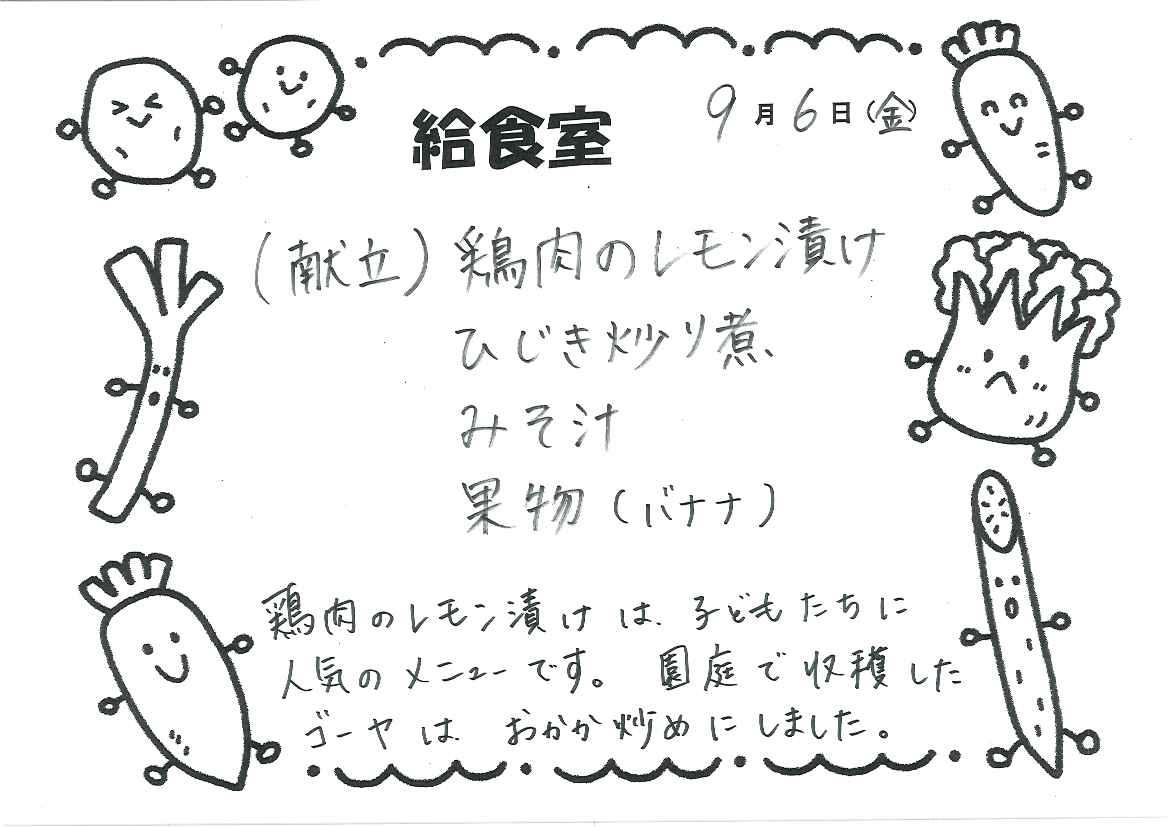 給食室
9月6日(金)
(献立)鶏肉のレモン漬け
ひじき炒り煮
みそ汁
果物(バナナ)
鶏肉のレモン漬けは、子どもたちに
人気のメニューです。 園庭で収穫した
ゴーヤは、おかか炒めにしました。